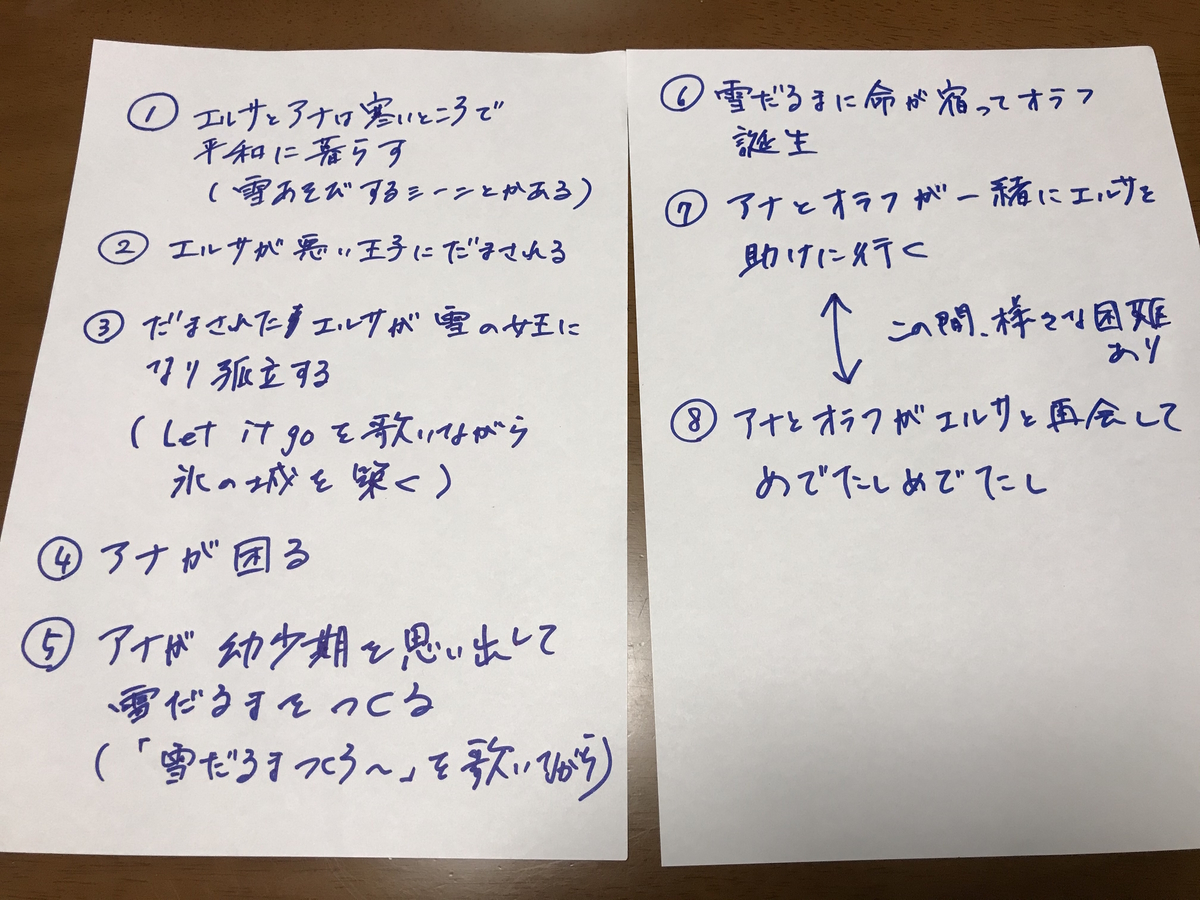 ① エルサとアナは寒いところで
平和に暮らす
(雪あそびするシーンとかある)
② エルサが悪い王子にだまされる
③ だまされたエルサが雪の女王に
なり孤立する
(Let it goを歌いながら
氷の城を築く)
④ アナが困る
⑤ アナが幼少期を思い出して
雪だるまをつくる
(「雪だるまつくろ〜」を歌いながら)
⑥ 雪だるまに命が宿ってオラフ
誕生
⑦ アナとオラフが一緒にエルサを
助けに行く
この間、様々な困難
あり
⑧ アナとオラフがエルサと再会して
めでたしめでたし